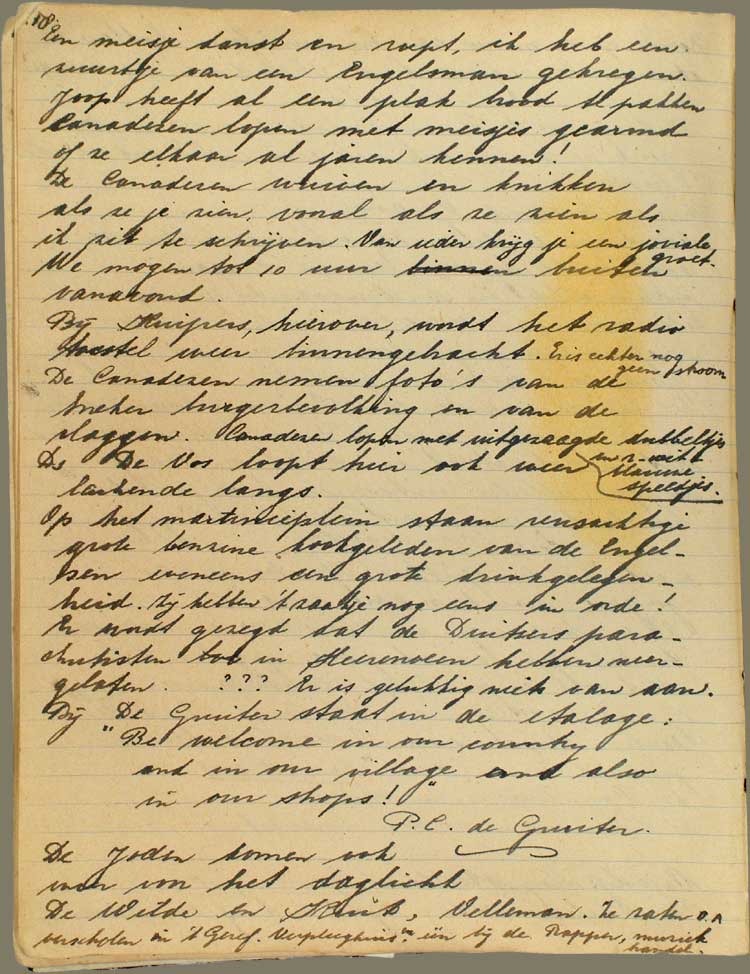 18.
Een meisje danst en roept, ik heb een
zuurtje van een Engelsman gekregen.
Joop heeft al een plak brood te pakken
Canadezen lopen met meisjes gearmd
of ze elkaar al jaren kennen!
De Canadezen wuiven en knikken
als ze je zien, vooral als ze zien als
ik zit te schrijven. Van ieder krijg je een joviale
groet.
We mogen tot 10 uur binnen buiten
vanavond.
Bij Kuipers, hierover, wordt het radio
toestel weer binnengebracht. Er is echter nog
geen stroom
De Canadezen nemen foto's van de
Sneker burgerbevolking en van de
vlaggen. Canadezen lopen met uitgezaagde dubbeltjes
in r-wit-
blauwe
speldjes.
Ds De Vos loopt hier ook weer
lachende langs.
Op het martiniplein staan reusachtige
grote benzine kookgeleden van de Engel-
sen eveneens een grote drinkgelegen-
heid. Zij hebben 't zaakje nog eens in orde!
Er wordt gezegd dat de Duitsers para-
chutisten in Heerenveen hebben neer-
gelaten. ??? Er is gelukkig niets van aan.
Bij De Gruiter staat in de etalage:
"Be welcome in our country
and in our village and also
in our shops!"
P.C. de Gruiter.
De Joden komen ook
weer voor het daglicht
De Wilde en Velleman. Ze zaten o.a
verscholen in 't Geref. Verpleeghuis en bij de Rapper, muziek
handel.